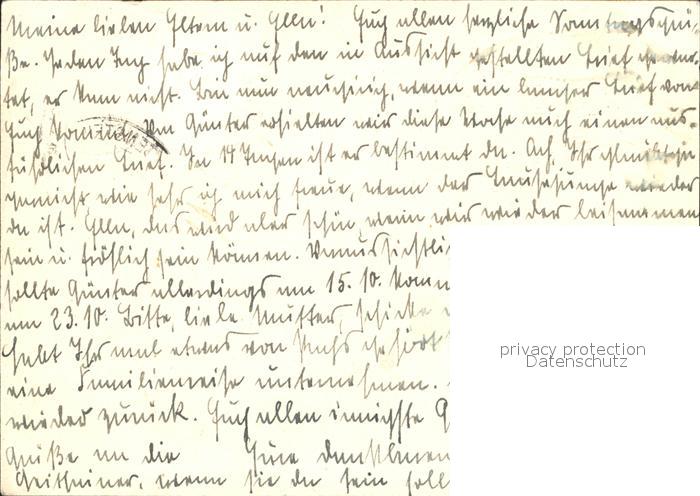 Meine lieben Eltern u. Elln! Euch allen herzliche Sonntagsgrü-
ße. Jeden Tag habe ich auf den in Aussicht gestellten Brief gewar-
tet, er kam nicht. Bin nun neugierig, wann ein langer Brief von
Euch kommt. Von Günter erhielten wir diese Woche auch einen aus-
führlichen Brief. In 14 Tagen ist er bestimmt da. Ach, Ihr glaubt
garnicht wie sehr ich mich freue, wenn der wieder
da ist. Elln, das wird aber schön, wenn wir wieder beisammen
sein u. fröhlich sein können. Voraussichtli
sollte Günter allerdings am 15.10. komm
am 23.10. Bitte, liebe Mutter, schicke
Habt Ihr mal etwas von gehört
eine Familienreise unternehmen.
wieder zurück. Euch allen innigste G
Grüße an die Eure
wenn sie da sein soll
privacy protection
Datenschutz